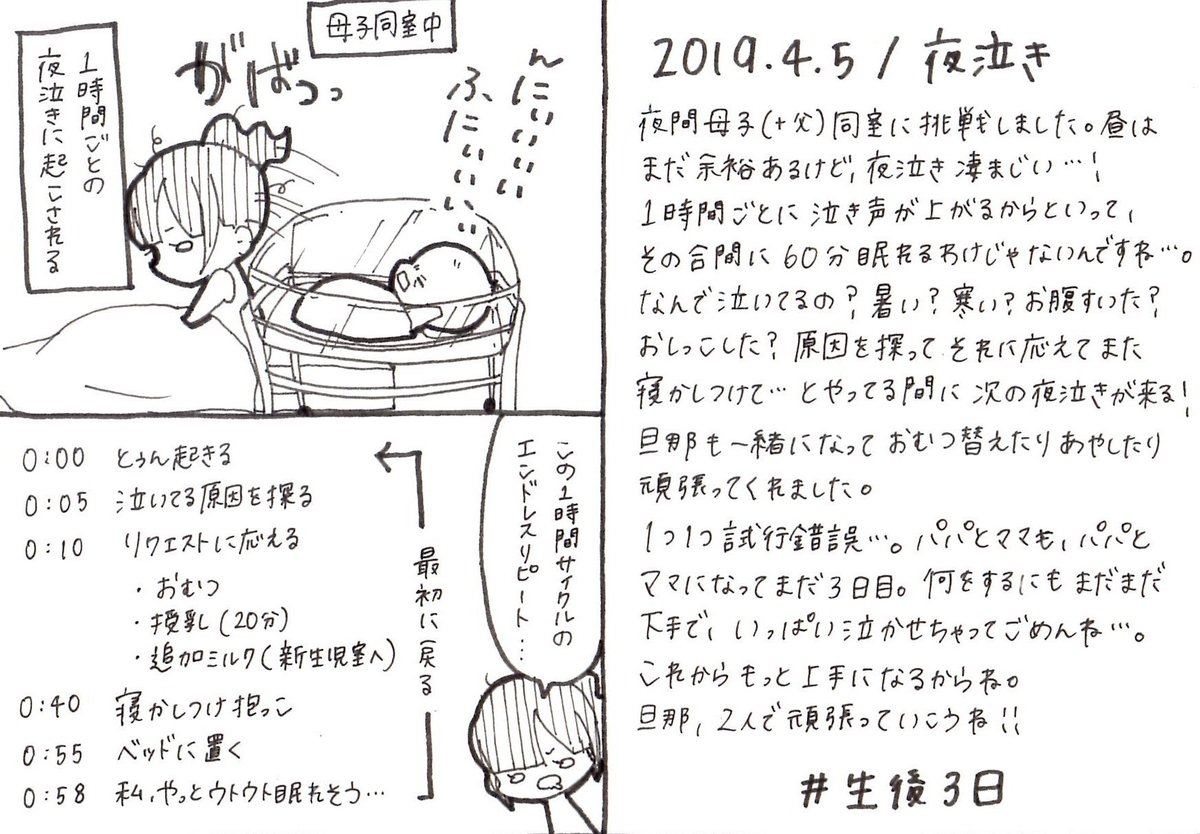 母子同室中
1時間ごとの
夜泣きに起こされる
がばっっ
んにぃぃぃぃ
ふにぃぃぃぃ
0:00 とぅん起きる
0:05 泣いてる原因を探る
0:10 リクエストに応える
・おむつ
・授乳(20分)
・追加ミルク(新生児室へ)
0:40 寝かしつけ抱っこ
0:55 ベッドに置く
0:58 私、やっとウトウト眠れそう…
最初に戻る
この1時間サイクルの
エンドレスリピート…
2019.4.5/夜泣き
夜間母子(+父)同室に挑戦しました。昼は
まだ余裕あるけど、夜泣き凄まじい…!
1時間ごとに泣き声が上がるからといって、
その合間に60分眠れるわけじゃないんですね…。
なんで泣いてるの?暑い?寒い?お腹すいた?
おしっこした?原因を探ってそれに応えてまた
寝かしつけて…とやってる間に次の夜泣きが来る!
旦那も一緒になっておむつ替えたりあやしたり
頑張ってくれました。
1つ1つ試行錯誤…。パパとママも、パパと
ママになってまだ3日目。何をするにもまだまだ
下手で、いっぱい泣かせちゃってごめんね…。
これからもっと上手になるからね。
旦那、2人で頑張っていこうね!!
#生後3日